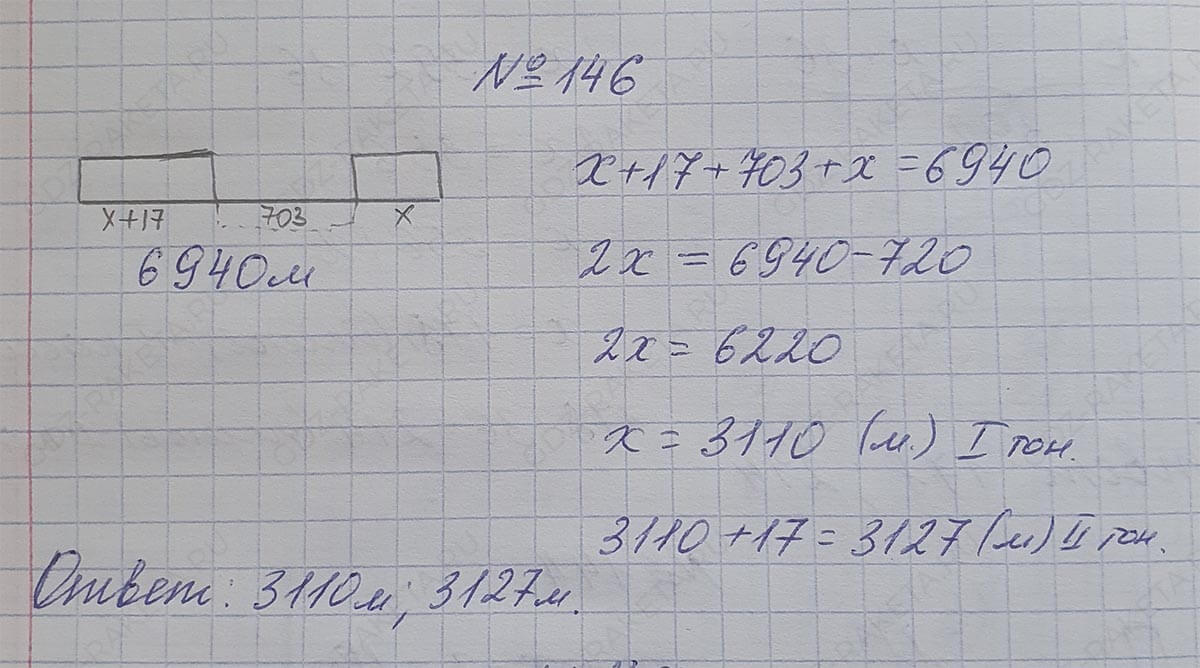 № 146
x+17 703 x
6940м
x+17+703+x=6940
2x = 6940-720
2x = 6220
x = 3110 (м.) I тон.
3110+17=3127(м) II тон.
Ответ: 3110м; 3127м.